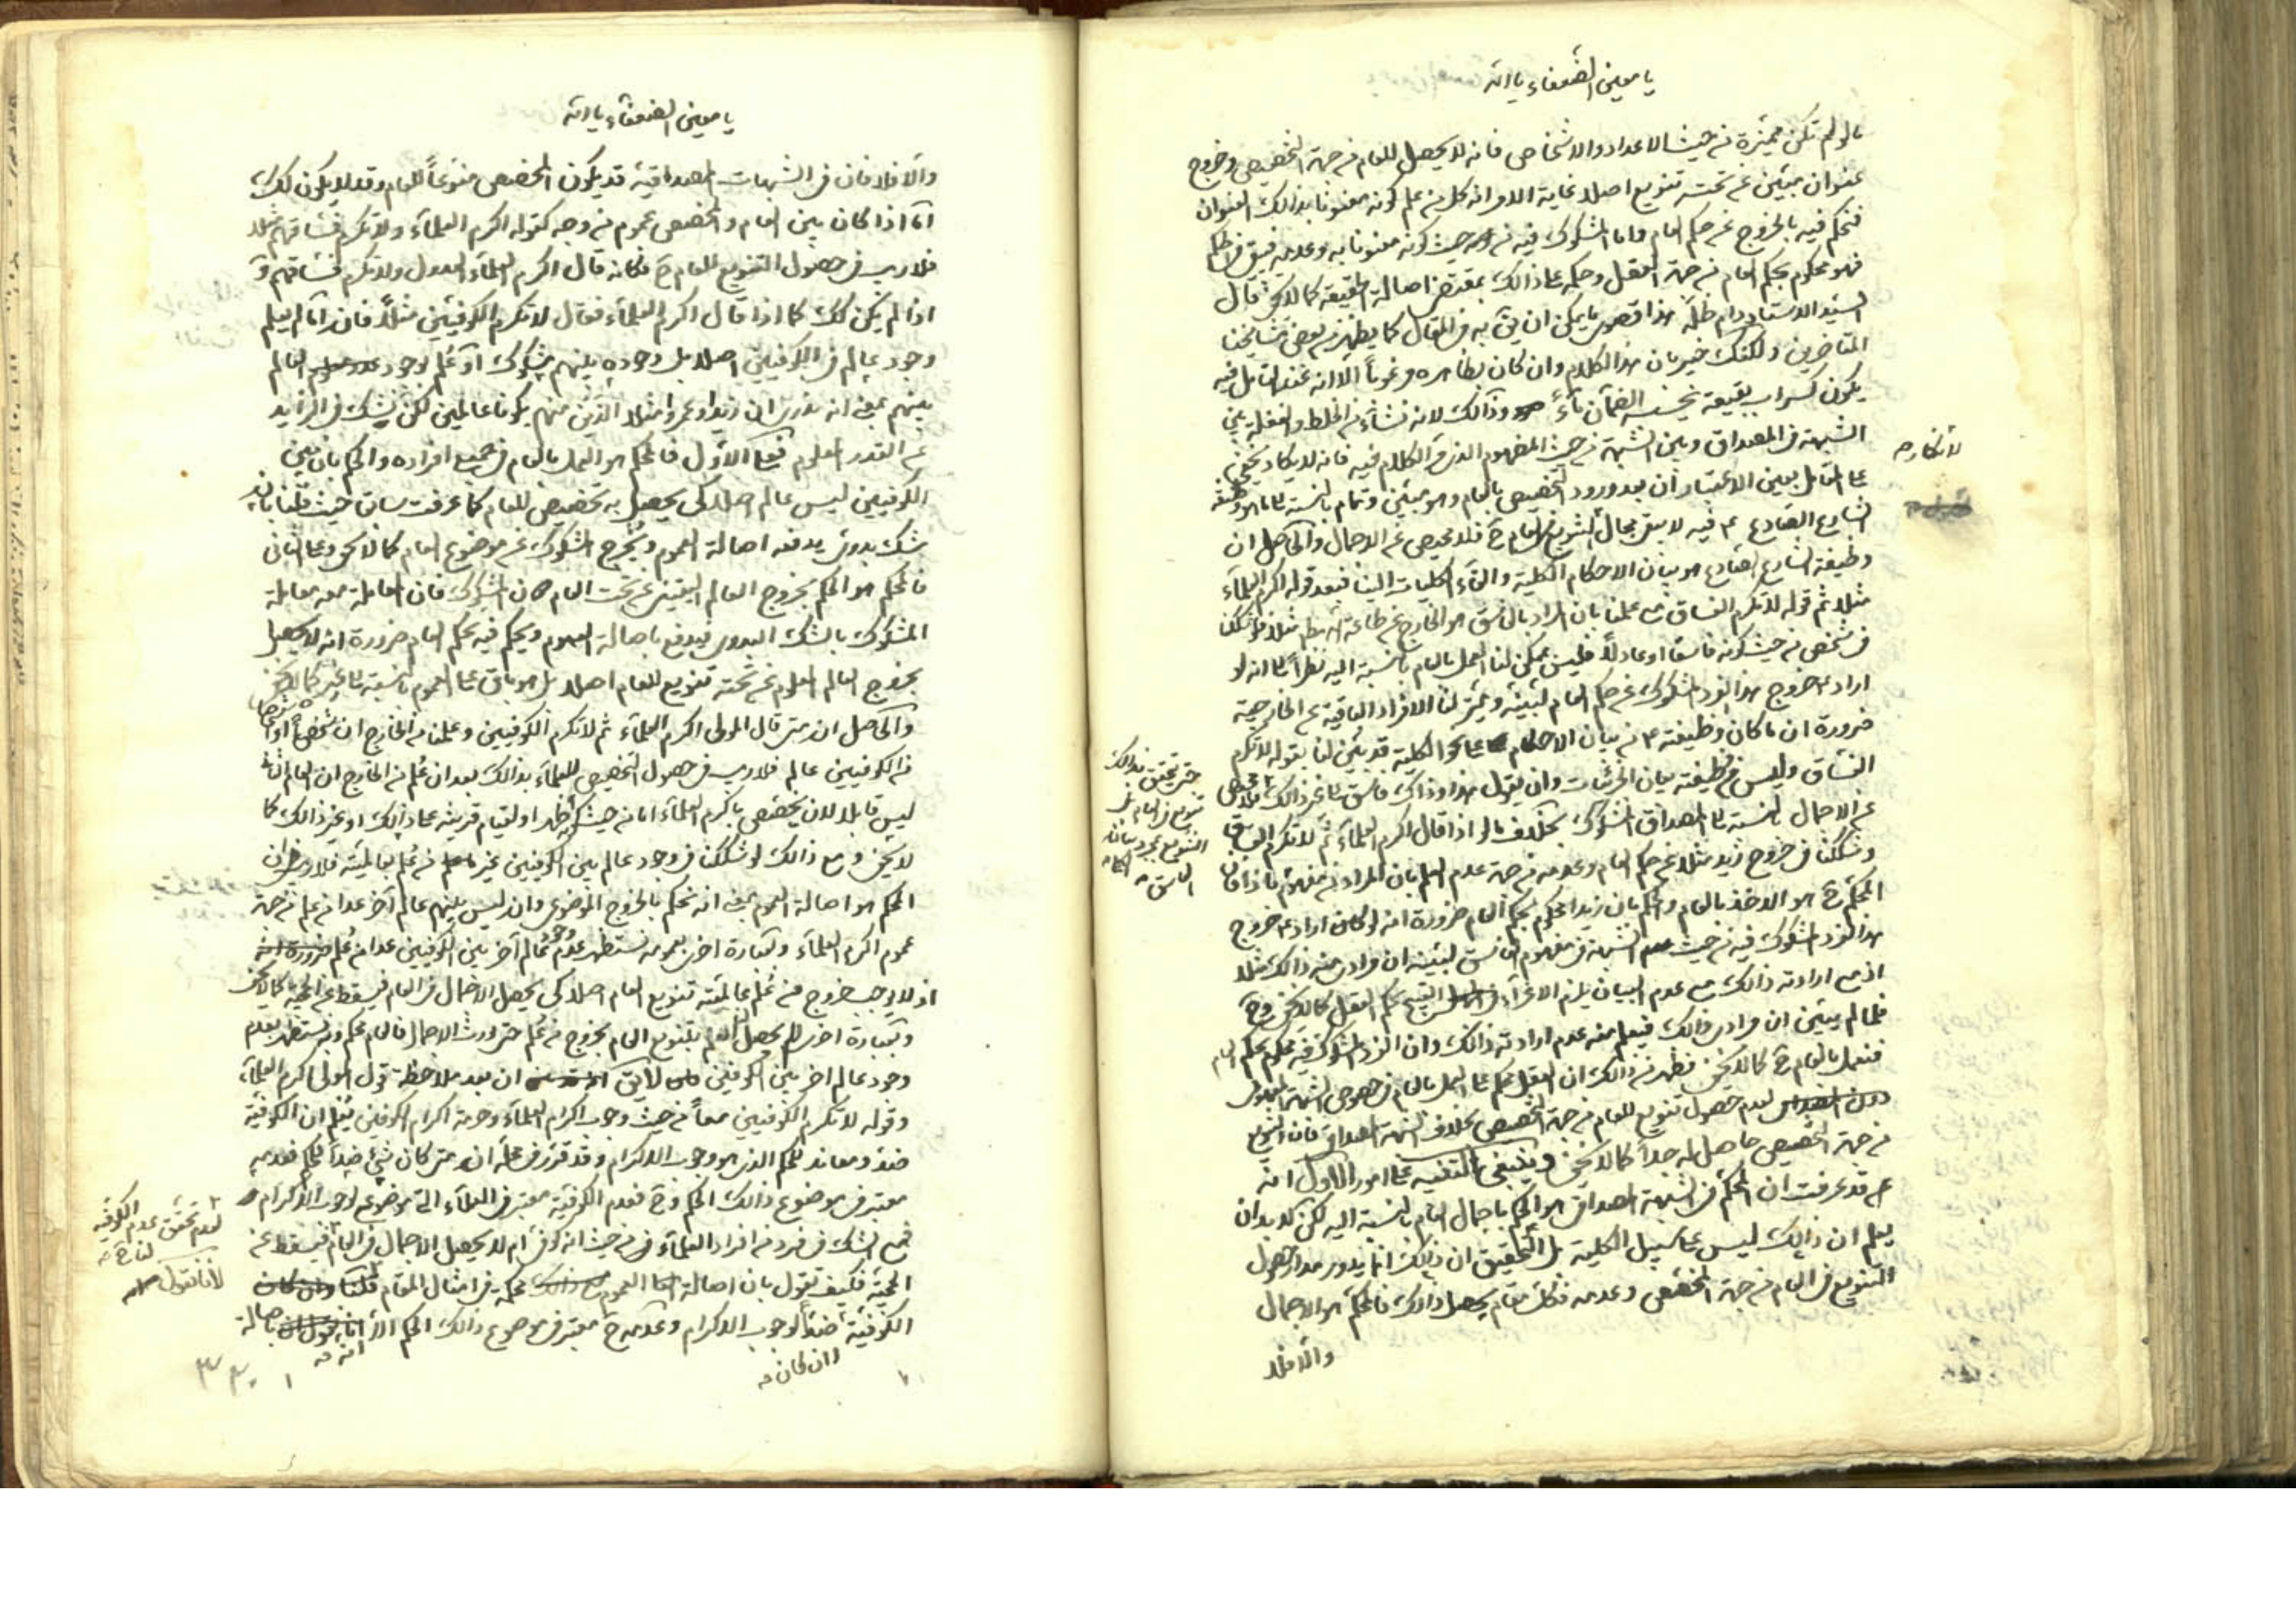 يا معين الضعفاء يا الله
مالو لم تكن مميّزة من حيث الاعداد والاشخاص فانه لا يحصل للعام من جهة التخصيص وخروج
عنوان مبيّن عن تحته تنويع اصلا غاية الامر انه كل من علم كونه معنونا بذالك العنوان
فنحكم فيه بالخروج عن حكم العام واما المشكوك فيه من حيث كونه معنونا به وعدمه فيبقى
فهو محكوم بحكم العام من جهة العقل وحكمه على ذالك بمقتضى اصالة الحقيقة كما لا يخفى قال
السيّد الاستاد دام ظلّه هذا قصوى ما يمكن ان يقى به فى المقال كما يظهر من بعض مشايخنا
المتاخرين ولكنك خبير بان هذا الكلام وان كان بظاهره مرغوباً الا انه عند التأمل فيه
يكون كسراب بقيعة يحسبه الظمآن مآءً وذالك لانه نشاء من الخلط والغفلة بين
الشبهة فى المصداق وبين الشبهة من حيث المفهوم الذى الكلام فيه فانه لا يكاد يخفى
على المتأمل بعين الاعتبار ان بعد ورود التخصيص بالعام وهو مبيّن وتمام بالنسبة الى ما هو وظيفة
الشارع الصادع ع فيه لا يبقى مجال التنويع فى العام ح فلا محيص عن الاجمال والحاصل ان
وظيفة الشارع الصادع هو بيان الاحكام الكلية والقآء الكليات الينا فبعد قوله اكرم العلمآء
مثلا ثم قوله لا تكرم الفساق مع علمنا بان المراد بالفاسق هو الخارج عن طاعة الله مثلا فلو شككنا
فى شخص من حيث كونه فاسقا او عادلاً فليس يمكن لنا العمل بالعام بالنسبة اليه نظراً الى انه لو
اراد ع خروج هذا الفرد المشكوك عن حكم العام لبيّنه ويميّز لنا الافراد الباقية عن الخارجية
ضرورة ان ما كان وظيفته ع من بيان الاحكام الكلية قد بيّن لنا بقوله لا تكرم
الفساق وليس من وظيفته بيان الجزئيات وان يقول هذا وذاك فاسق الى غير ذالك فلا محيص
عن الاجمال بالنسبة الى المصداق المشكوك بخلاف ما لو اذا قال اكرم العلمآء ثم لا تكرم الفساق
وشككنا فى خروج زيد مثلا عن حكم العام وعدمه من جهة عدم العلم بان المراد من مفهوم ما ذا فان
المحكّم ح هو الاخذ بالعام والحكم بان زيدا محكوم بحكم العام ضرورة انه لو كان اراد ع خروج
هذا الفرد المشكوك فيه من حيث الشبهة فى مفهوم الفاسق لبيّنه ان مرادى منه ذالك مثلا
اذ مع ارادته ذالك مع عدم البيان يلزم الاغرآء القبيح بحكم العقل كما لا يخفى وح
فلما لم يبيّن ان مرادى ذالك فيعلم منه عدم ارادته ذالك وان الفرد المشكوك فيه محكوم بحكم العام
فنعمل بالعام ح كما لا يخفى فظهر من ذالك ان العقل يحكم على العمل بالعام فى خصوص الشبهة المفهومى
لعدم حصول تنويع للعام من جهة التخصيص بخلاف الشبهة المصداقى فان التنويع
من جهة التخصيص حاصل له جداً كما لا يخفى وينبغى التنبيه على امور الاول انه
قد عرفت ان المحكّم فى الشبهة المصداقى هو الحكم باجمال العام بالنسبة اليه لكن لا بد ان
يعلم ان ذالك ليس على سبيل الكلية بل التحقيق ان ذالك انما يدور مدار حصول
التنويع فى العام من جهة المخصّص وعدمه فكل مقام يحصل ذالك فالمحكّم هو الاجمال
والّا فلا
لا نكاره
حتى يحقق بذالك
تنويع فى العام بل
التنويع بمجرد بيانه
الفاسق
يا معين الضعفاء يا الله
والّا فلا فان فى الشبهات المصداقية قد يكون المخصص منوّعاً للعام وقد لا يكون كك
امّا اذا كان بين العام والمخصص عموم من وجه كقوله اكرم العلمآء ولا تكرم فساقهم مثلا
فلا ريب فى حصول التنويع للعام ح فكانه قال اكرم العلمآء العدول ولا تكرم فساقهم وآ
اذا لم يكن كك كما اذا قال اكرم العلمآء فقال لا تكرم الكوفيين مثلاً فان امّا لم يعلم
وجود عالم فى الكوفيين اصلا بل وجوده بينهم مشكوك او علم بوجود العالم
بينهم بمعنى انه ندرى ان زيدا وعمروا مثلا الذين منهم يكونا عالمين لكن نشك فى الزايد
عن القدر المعلوم فعلى الاول فالمحكم هو العمل بالعام فى جميع افراده والحكم بان فى
الكوفيين ليس عالم اصلا كى يحصل به تخصيص للعام كما عرفت سابقا حيث قلنا بانه
شك بدوى يدفعه اصالة العموم ويخرج المشكوك عن موضوع العام كما لا يخفى وعلى الثانى
فالمحكم هو الحكم بخروج العالم اليقينى عن تحت العام المشكوك فان المعاملة معه معاملة
المشكوك بالشك البدوى فيدفع باصالة العموم ويحكم فيه بحكم العام ضرورة انه لا يحصل
بخروج العالم المعلوم عن تحته تنويع للعام اصلا بل هو باق على العموم بالنسبة الى غيره كما لا يخفى
والحاصل ان متى قال المولى اكرم العلمآء ثم لا تكرم الكوفيين وعلمنا من الخارج ان شخصاً او اشخاصا
من الكوفيين عالم فلا ريب فى حصول التخصيص للعلمآء بذالك بعد ان علم من الخارج ان العام
ليس قابلا لان يخصّص باكرم العلمآء اما من حيث كونه اظهر او لقيام قرينه على ذالك او غير ذالك كما
لا يخفى ومع ذالك لو شككنا فى وجود عالم بين الكوفيين غير من علم بعالميّته فلا ريب فى ان
المحكم هو اصالة العموم بمعنى انه نحكم بالخروج الموضوعى وان ليس بينهم عالم آخر عدا من علم من جهة
عموم اكرم العلمآء وبعبارة اخرى بعمومه نستظهر عدم وجود عالم آخر بين الكوفيين عدا من علم
اذ لا يوجب خروج من علم عالميّته تنويع العام اصلا كى يحصل الاجمال فى العام فيسقط عن الحجيّة كما لا يخفى
وبعبارة اخرى لم يحصل العلم بتنويع العام بخروج من علم حتى يورث الاجمال فالعام محكم وبه نستظهر بعدم
وجود عالم اخر بين الكوفيين لا يق ان بعد ملاحظة قول المولى اكرم العلمآء
وقوله لا تكرم الكوفيين معاً من حيث وجوب اكرام العلمآء وحرمة اكرام الكوفيين يُعلم ان الكوفيّة
ضد ومعاند للحكم الذى هو وجوب الاكرام وقد قرّر فى محلّه ان متى كان شئ ضداً لحكم فعدمه
معتبر فى موضوع ذالك الحكم وح فعدم الكوفيّة معتبر فى العلمآء التى موضوع لوجوب الاكرام
فمع الشك فى فرد من افراد العلمآء من حيث انه كوفى ام لا يحصل الاجمال فى العام فيسقط عن
الحجيّة فكيف تقول بان اصالة العموم محكمة فى امثال المقام
الكوفيّة ضداً لوجوب الاكرام وعدمه ح معتبر فى موضوع ذالك الحكم الا باصالة
انه
وان كان
لعدم تحقق عدم الكوفيّة
لنا ح
لانا نقول